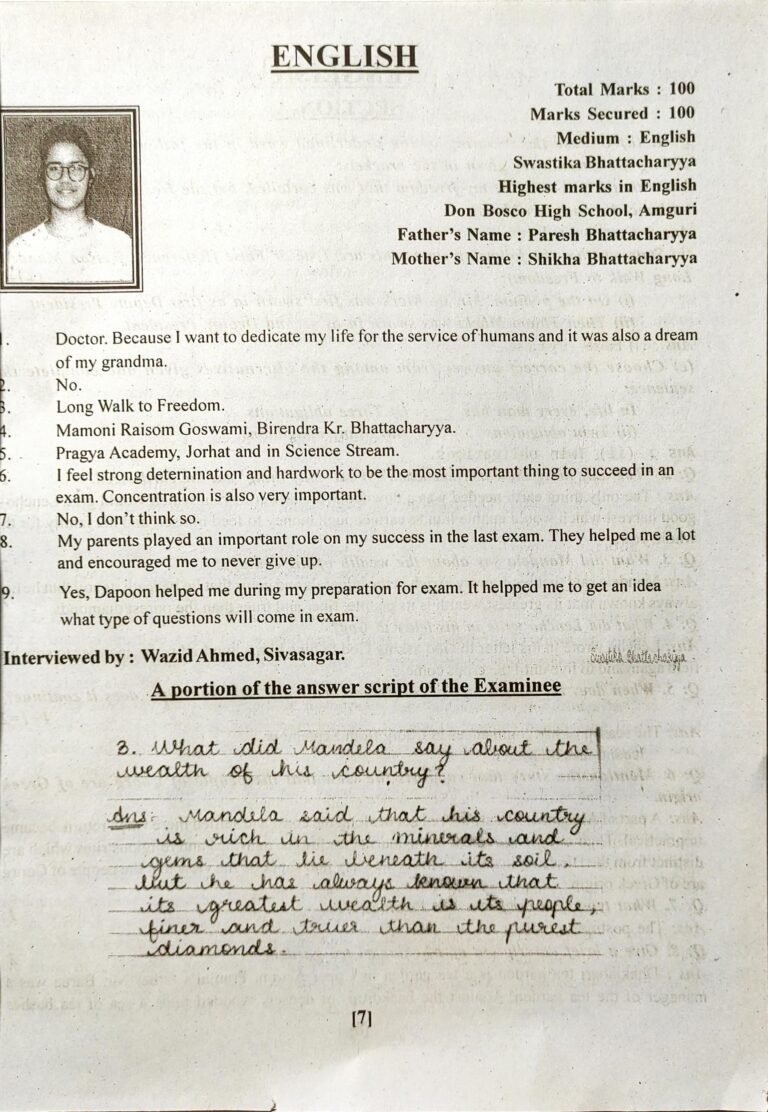 ENGLISH
Total Marks : 100
Marks Secured : 100
Medium : English
Swastika Bhattacharyya
Highest marks in English
Don Bosco High School, Amguri
Father's Name : Paresh Bhattacharyya
Mother's Name : Shikha Bhattacharyya
1. Doctor. Because I want to dedicate my life for the service of humans and it was also a dream
of my grandma.
2. No.
3. Long Walk to Freedom.
4. Mamoni Raisom Goswami, Birendra Kr. Bhattacharyya.
5. Pragya Academy, Jorhat and in Science Stream.
6. I feel strong deternination and hardwork to be the most important thing to succeed in an
exam. Concentration is also very important.
7. No, I don't think so.
8. My parents played an important role on my success in the last exam. They helped me a lot
and encouraged me to never give up.
9. Yes, Dapoon helped me during my preparation for exam. It helpped me to get an idea
what type of questions will come in exam.
Interviewed by : Wazid Ahmed, Sivasagar.
Swastika Bhattacharyya
A portion of the answer script of the Examinee
3. What did Mandela say about the
wealth of his country?
Ans: Mandela said that his country
is rich in the minerals and
gems that lie beneath its soil.
But he has always known that
its greatest wealth is its people,
finer and truer than the purest
diamonds.
[7]